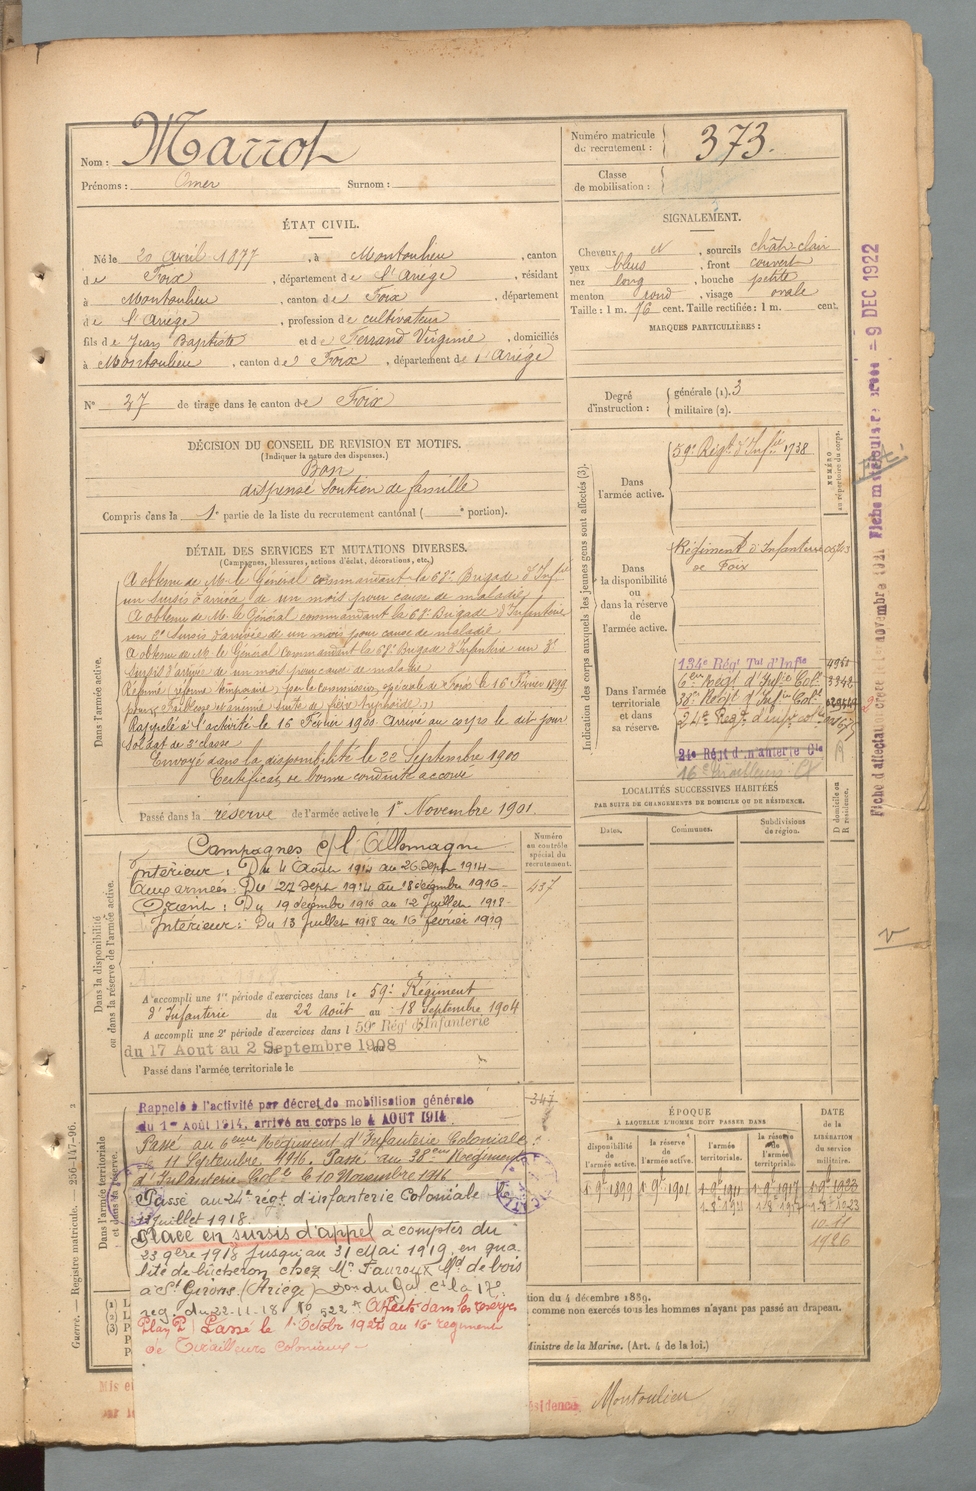 Nom : Marrot
Prénoms : Omer Surnom :
Numéro matricule
du recrutement : 373.
Classe
de mobilisation :
ÉTAT CIVIL.
Né le 20 avril 1877, à Montoulieu, canton
de Foix, département de l'Ariège, résidant
à Montoulieu, canton de Foix, département
de l'Ariège, profession de cultivateur
fils de Jean Baptiste et de Ferrand Virginie, domiciliés
à Montoulieu, canton de Foix, département de l'Ariège
N° 27 de tirage dans le canton de Foix
SIGNALEMENT.
Cheveux et, sourcils chât. clair
yeux bleus, front couvert
nez long, bouche petite
menton rond, visage ovale
Taille : 1 m. 76 cent. Taille rectifiée : 1 m. cent.
MARQUES PARTICULIÈRES :
Degré
d'instruction :
générale (1). 3
militaire (2).
DÉCISION DU CONSEIL DE REVISION ET MOTIFS.
(Indiquer la nature des dispenses.)
Bon
dispensé soutien de famille
Compris dans la 1e partie de la liste du recrutement cantonal ( e portion).
DÉTAIL DES SERVICES ET MUTATIONS DIVERSES.
(Campagnes, blessures, actions d'éclat, décorations, etc.)
Dans l'armée active.
A obtenu de M. le Général commandant la 67e Brigade d'Infie
un sursis d'arrivée de un mois pour cause de maladie
A obtenu de M. le Général commandant la 67e Brigade d'Infanterie
un 2e Sursis d'arrivée de un mois pour cause de maladie
A obtenu de M. le Général commandant la 67e Brigade d'Infanterie un 3e
sursis d'arrivée de un mois pour cause de maladie
Réformé (réforme temporaire) par la commission spéciale de Foix le 16 Février 1899
pour faiblesse et anémie suite de fièvre typhoïde
Rappelé à l'activité le 16 Février 1900. Arrivé au corps le dit jour
Soldat de 2e classe
Envoyé dans la disponibilité le 22 Septembre 1900
Certificat de bonne conduite accordé
Passé dans la réserve de l'armée active le 1er Novembre 1901
Dans la disponibilité
ou dans la réserve de l'armée active.
Campagnes c/ l'Allemagne
Intérieur : Du 4 Août 1914 au 26 Sept 1914
aux armées : Du 27 Sept 1914 au 18 décembre 1916
Orient : Du 19 décembre 1916 au 12 Juillet 1918
Intérieur : Du 13 Juillet 1918 au 16 février 1919
A accompli une 1re période d'exercices dans le 59e Régiment
d'Infanterie du 22 Août au 18 Septembre 1904
A accompli une 2e période d'exercices dans l 59e Régt d'Infanterie
du 17 Aout au 2 Septembre 1908
Passé dans l'armée territoriale le
Numéro
au contrôle
spécial du
recrutement.
437
347
Dans l'armée territoriale
et dans sa réserve.
Rappelé à l'activité par décret de mobilisation générale
du 1er Août 1914, arrivé au corps le 4 AOUT 1914
Passé au 6eme Régiment d'Infanterie Coloniale
le 11 Septembre 1916. Passé au 38em Régiment
d'Infanterie Colle le 10 Novembre 1916
Passé au 24e régt d'infanterie Coloniale le
Juillet 1918.
Placé en sursis d'appel à compter du
jusqu'au 31 Mai 1919 en qua
lité de bûcheron chez Mr Fauroux Md de bois
à St Girons (Ariège) Son du Gal Ct la 17e
reg. du 22-11-18 No 522 Affecté dans les réserves
Plan P. Passé le 1er Octobre au 16e régiment
de Tirailleurs Coloniaux
Indication des corps auxquels les jeunes gens sont affectés (3).
Dans
l'armée active.
59e Régt d'Infie 1738
NUMÉRO
au répertoire du corps.
Dans
la disponibilité
ou
dans la réserve
de
l'armée active.
Régiment d'Infanterie
de Foix
Dans l'armée
territoriale
et dans
sa réserve.
134e Régt Tal d'Infie
6em Régt d'Infie Cole
38e Régt d'Infie Cole
24e Régt d'infie colle
24e Régt d'infanterie Cle
16e tirailleurs Cx
LOCALITÉS SUCCESSIVES HABITÉES
PAR SUITE DE CHANGEMENTS DE DOMICILE OU DE RÉSIDENCE.
Dates.
Communes.
Subdivisions
de région.
D domicile ou
R résidence.
ÉPOQUE
À LAQUELLE L'HOMME DOIT PASSER DANS
DATE
DE LA
LIBÉRATION
du service
militaire.
la
disponibilité
de
l'armée active.
la réserve
de
l'armée active.
l'armée
territoriale.
la réserve
de
l'armée
territoriale.
1er 9bre 1899 1er 9bre 1901 1er 9bre 1911 1er 9bre 1917 1er 9bre 1923
10.11
1926
tion du 4 décembre 1889.
comme non exercés tous les hommes n'ayant pas passé au drapeau.
Ministre de la Marine. (Art. 4 de la loi.)
Montoulieu
Guerre. — Registre matricule. — 256-147-96.
Fiche d'affectation créée le novembre 1921 Fiche matriculaire — 9 DEC 1922